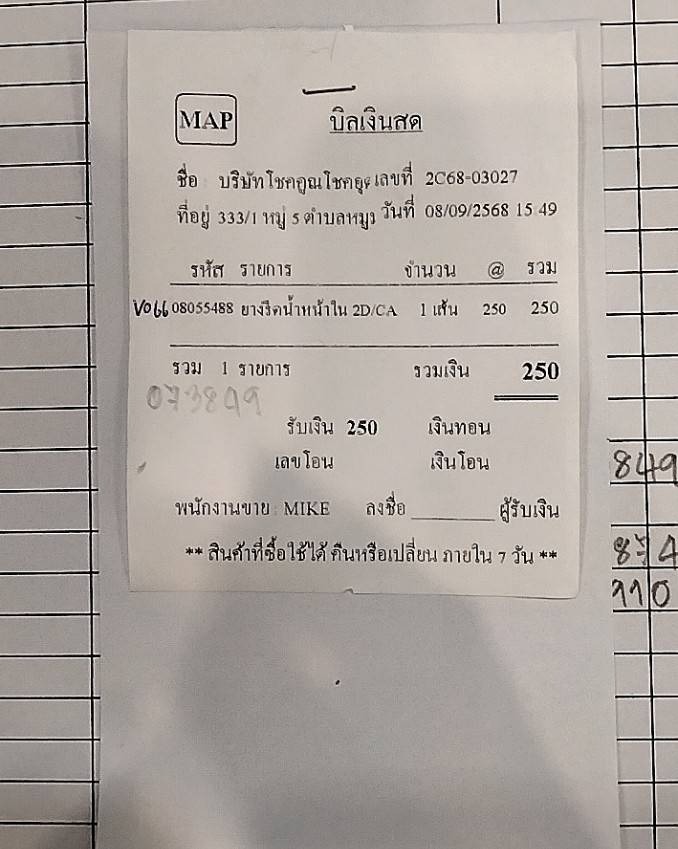 MAP บิลเงินสด
ชื่อ บริษัทโชคคูณโชคธุร เลขที่ 2C68-03027
ที่อยู่ 333/1 หมู่ 5 ตำบลหมูม วันที่ 08/09/2568 15 49
รหัส รายการ จำนวน @ รวม
V066 08055488 ยางรีดน้ำหน้าใน 2D/CA 1 เส้น 250 250
รวม 1 รายการ รวมเงิน 250
073849
รับเงิน 250 เงินทอน
เลขโอน เงินโอน
849
พนักงานขาย MIKE ลงชื่อ ผู้รับเงิน
** สินค้าที่ซื้อใช้ได้ คืนหรือเปลี่ยน ภายใน 7 วัน **
874